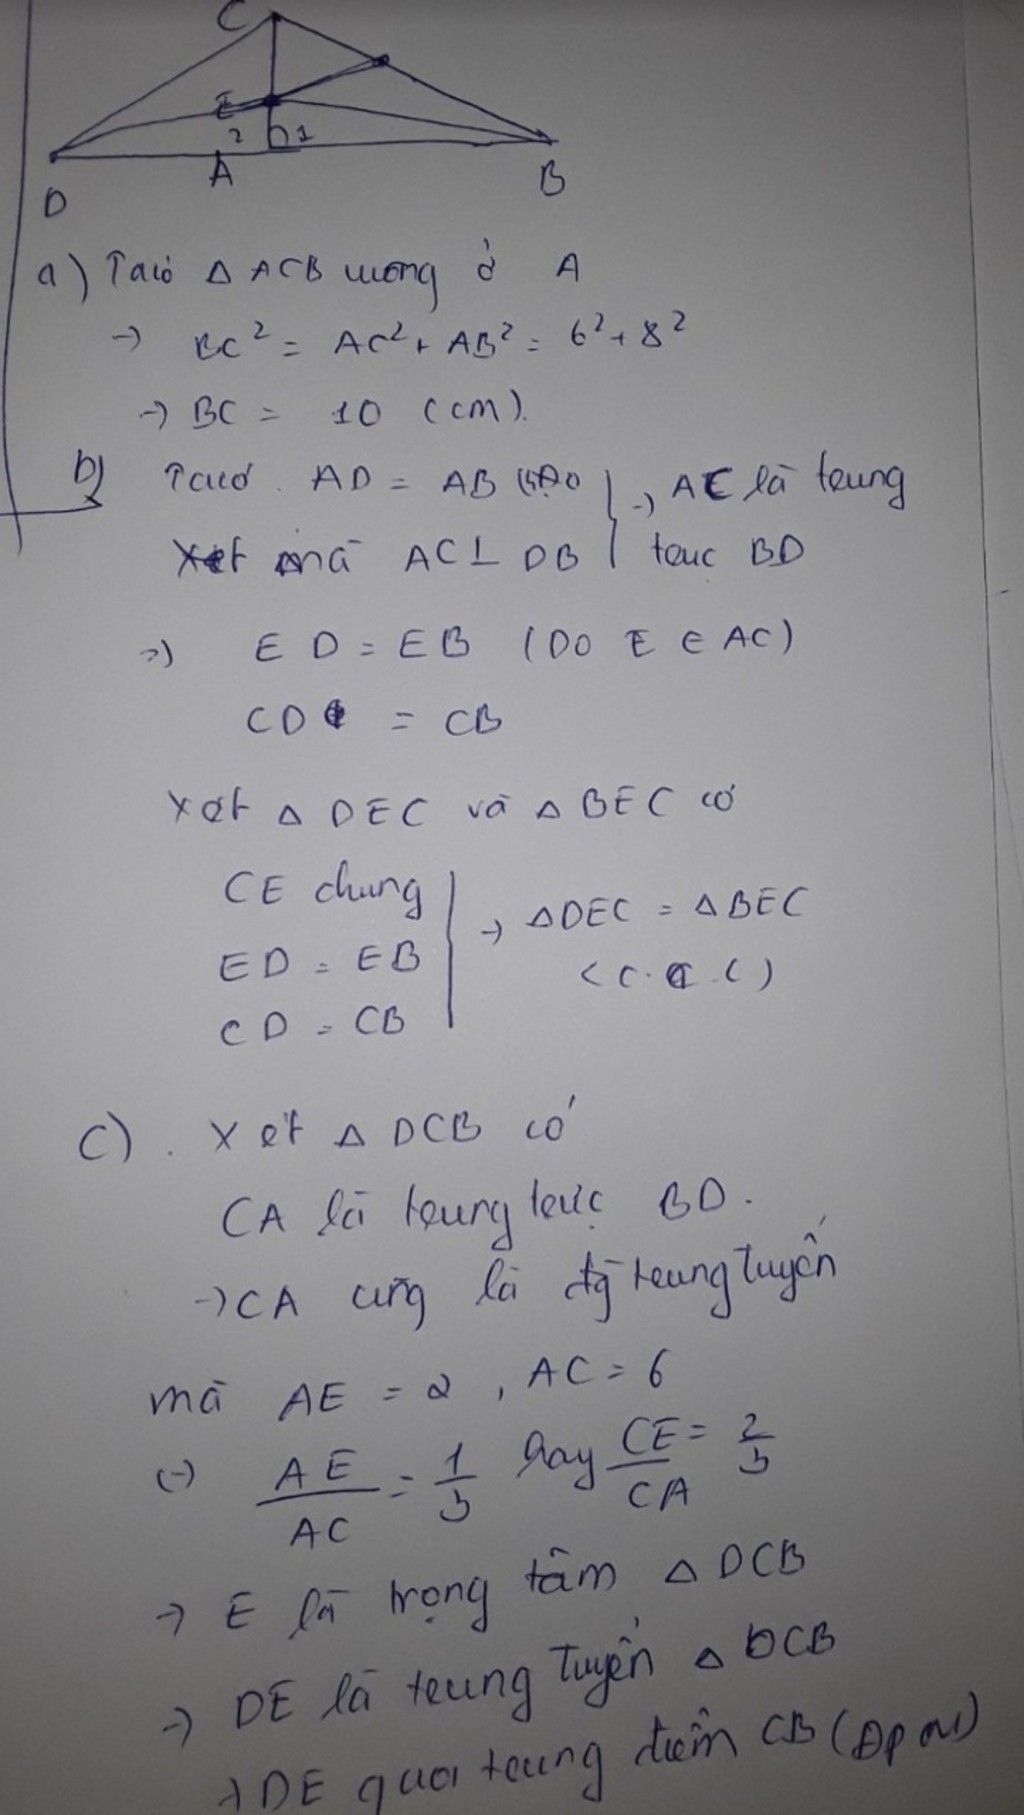 C
E
2 1
A
D
B
a) Ta có Δ ACB vuông ở A
→ BC² = AC² + AB² = 6² + 8²
→ BC = 10 (cm).
b) Ta có. AD = AB → AE là trung
mà AC ⊥ DB trực BD
→) ED = EB (Do E ∈ AC)
CD = CB
Xét Δ DEC và Δ BEC có
CE chung
ED = EB → ΔDEC = ΔBEC
(c.c.c)
CD = CB
c). Xét Δ DCB có
CA là trung trực BD.
→ CA cũng là đg trung tuyến
mà AE = 2, AC = 6
(→) AE/AC = 1/3 hay CE/CA = 2/3
→ E là trọng tâm Δ DCB
→ DE là trung tuyến Δ DCB
→ DE qua trung điểm CB (Đpcm)